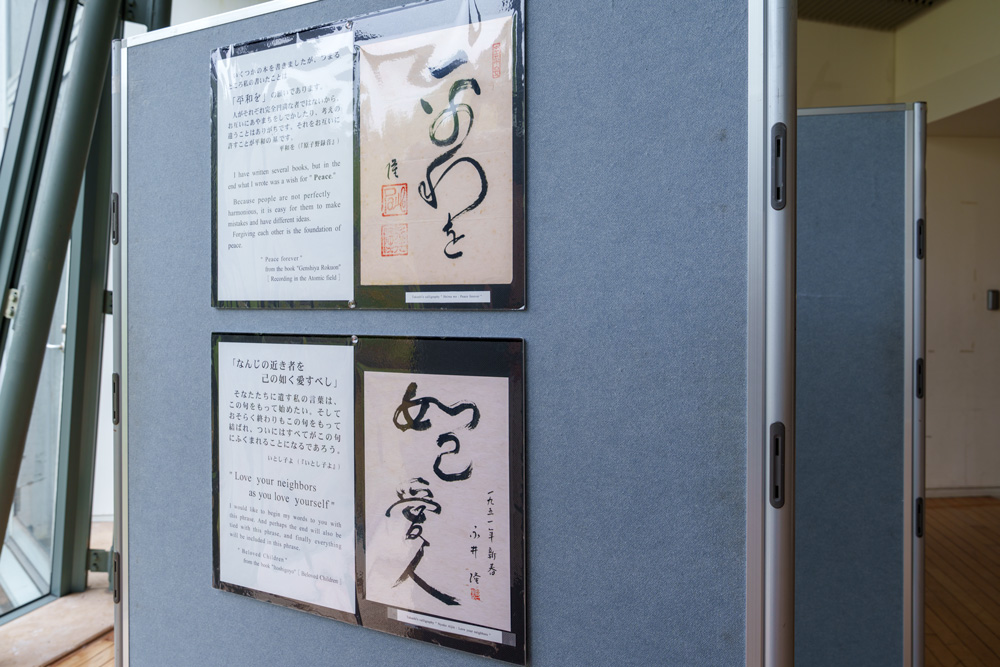 いくつかの本を書きましたが、つまる
ところ私の書いたことは
「平和を」の願いであります。
人がそれぞれ完全円満な者ではないから、
お互いにあやまちをしでかしたり、考えの
違うことはありがちです。それをお互いに
許すことが平和の基です。
平和を(『原子野録音』)
I have written several books, but in the
end what I wrote was a wish for " Peace."
Because people are not perfectly
harmonious, it is easy for them to make
mistakes and have different ideas.
Forgiving each other is the foundation of
peace.
" Peace forever "
from the book "Genshiya Rokuon"
[ Recording in the Atomic field ]
へいわを
隆
「なんじの近き者を
己の如く愛すべし」
そなたたちに遺す私の言葉は、
この句をもって始めたい。そして
おそらく終わりもこの句をもって
結ばれ、ついにはすべてがこの句
にふくまれることになるであろう。
いとし子よ(『いとし子よ』)
" Love your neighbors
as you love yourself "
I would like to begin my words to you with
this phrase. And perhaps the end will also be
tied with this phrase, and finally everything
will be included in this phrase.
" Beloved Children "
from the book [ Beloved Children ]
如己
愛人
一九五一年 新春
永井 隆